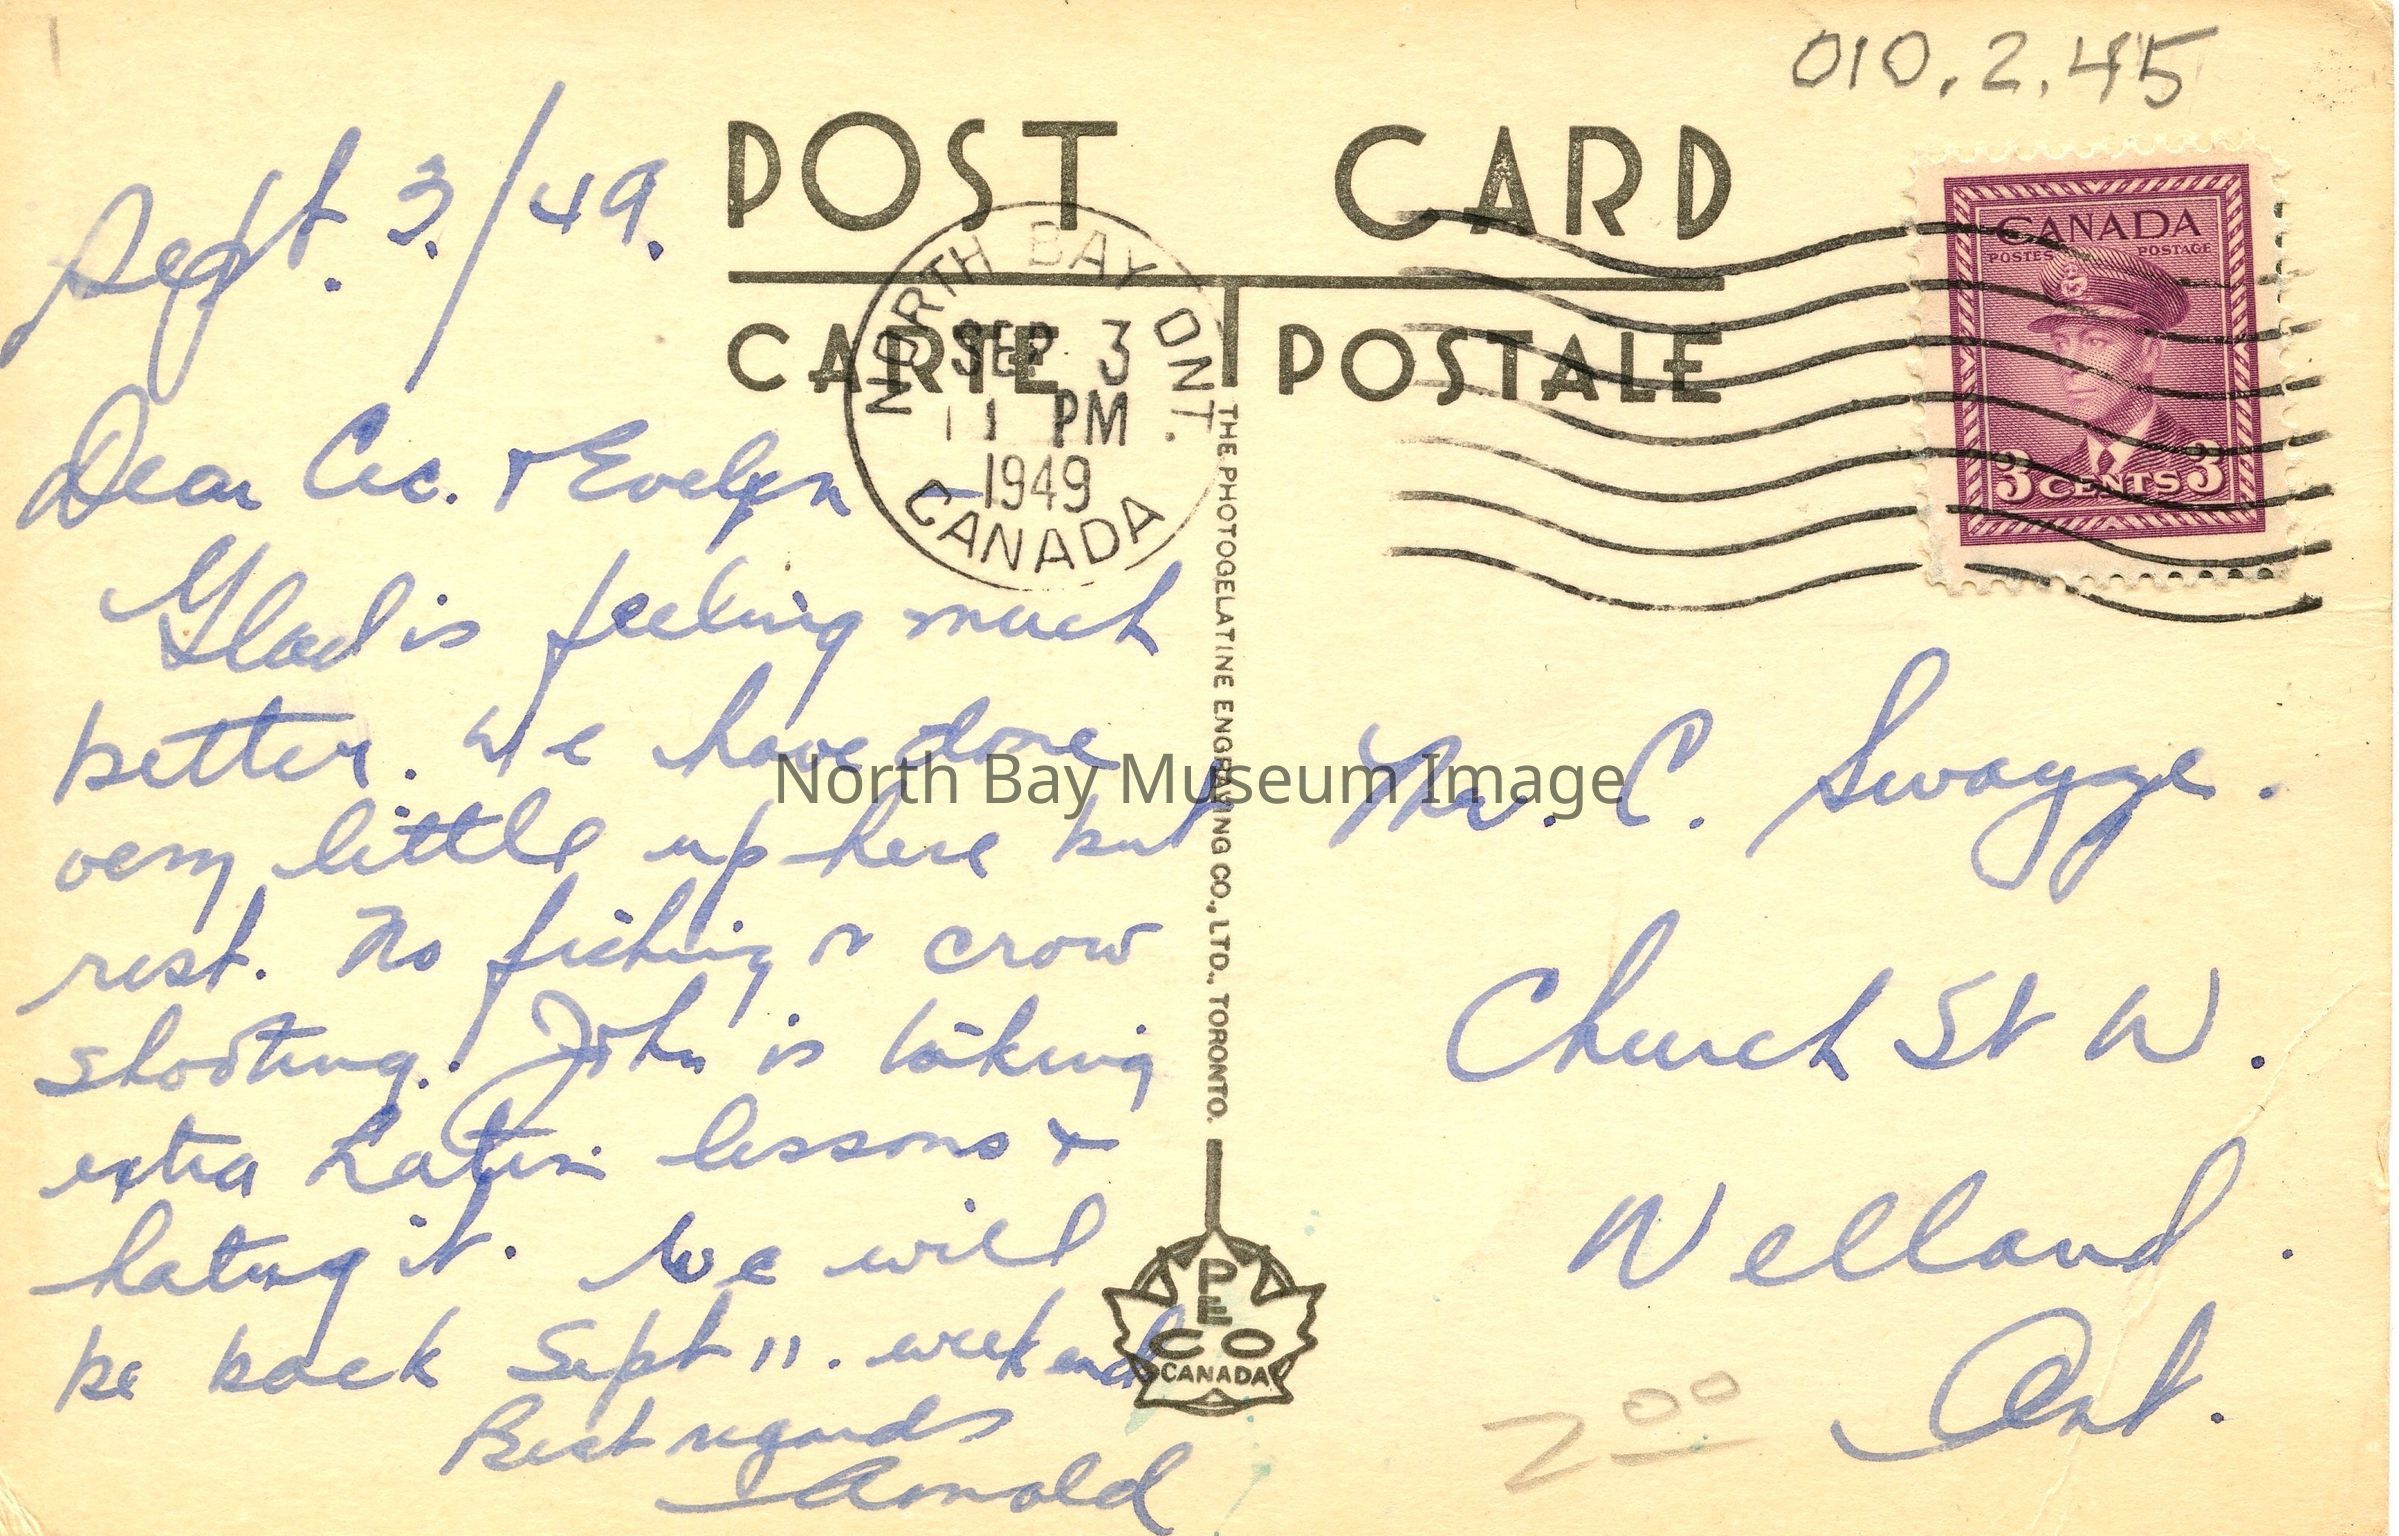 010.2.45
POST CARD
CARTE POSTALE
NORTH BAY ONT.
SEP 3
11 PM
1949
CANADA
CANADA
POSTES POSTAGE
3 CENTS 3
Sept. 3/49.
Dear Cec. & Evelyn –
Glad is feeling much
better. We have done
very little up here but
rest. No fishing or crow
shooting. John is taking
extra Latin lessons &
hating it. We will
be back Sept 11. weekend
Best regards
Arnold
THE PHOTOGELATINE ENGRAVING CO., LTD., TORONTO.
PECO
CANADA
Mr. C. Swayze.
Church St W.
Welland.
Ont.
2 00
North Bay Museum Image